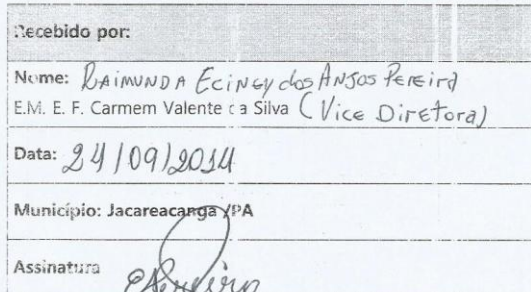 Recebido por:
Nome: RAIMUNDA Ecincy dos Anjos Pereira
E.M. E. F. Carmem Valente da Silva (Vice Diretora)
Data: 24/09/2014
Município: Jacareacanga /PA
Assinatura